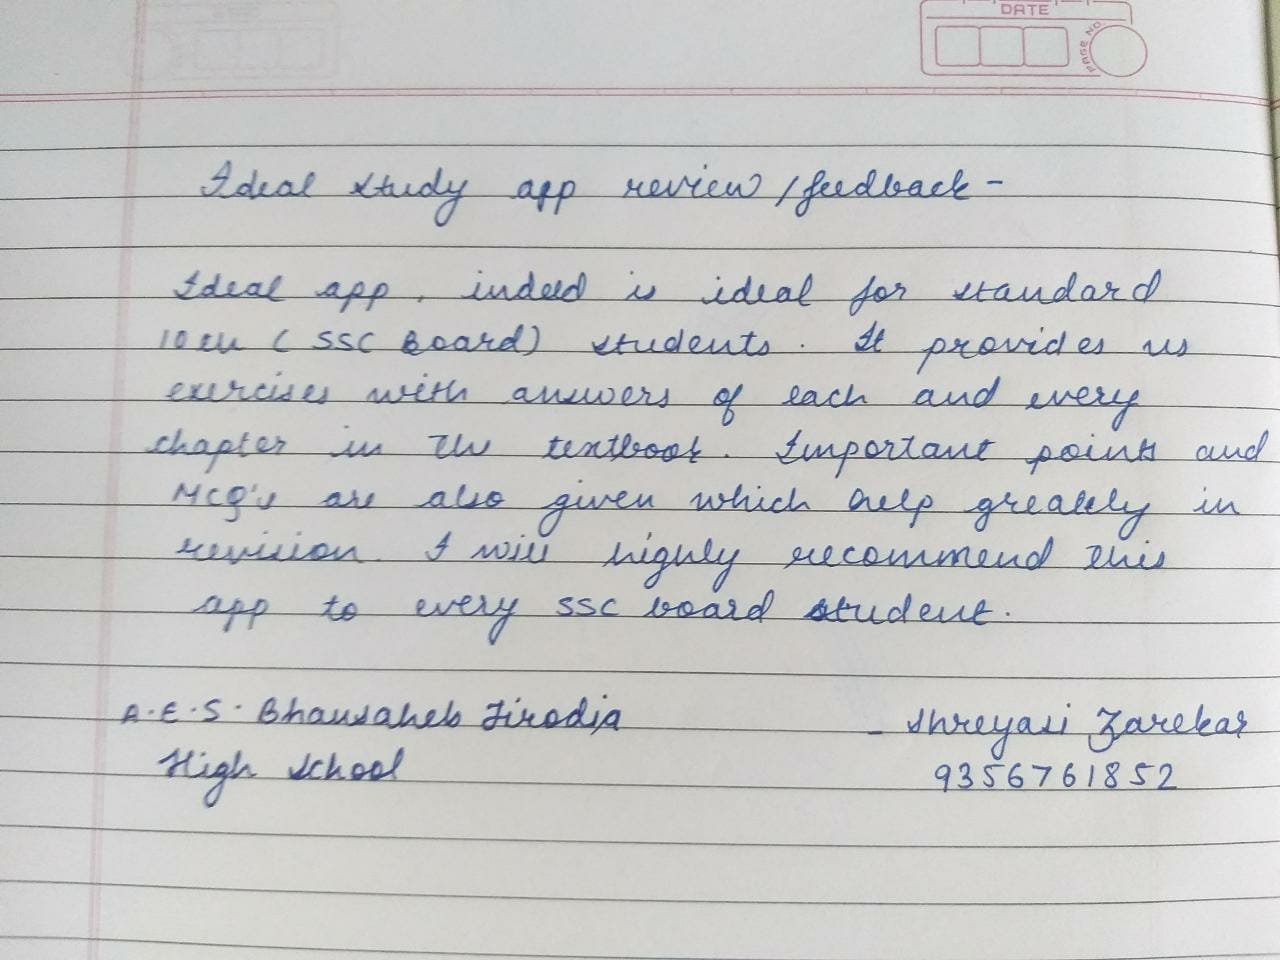 DATE
PAGE NO
Ideal study app review / feedback -
Ideal app, indeed is ideal for standard
10th ( SSC Board) students. It provides us
exercises with answers of each and every
chapter in the textbook. Important points and
MCQ's are also given which help greatly in
revision. I will highly recommend this
app to every SSC board student.
A.E.S. Bhausaheb Firodia
High School
- Shreyasi Zarekar
9356761852